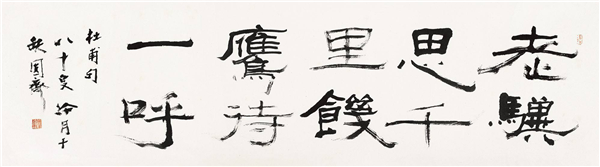 老驥
思千
里饑
鷹待
一呼
杜甫句
八十叟